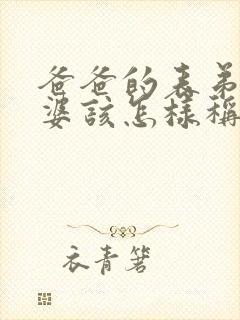 爸爸的表弟
婆該怎樣稱
衣青箬